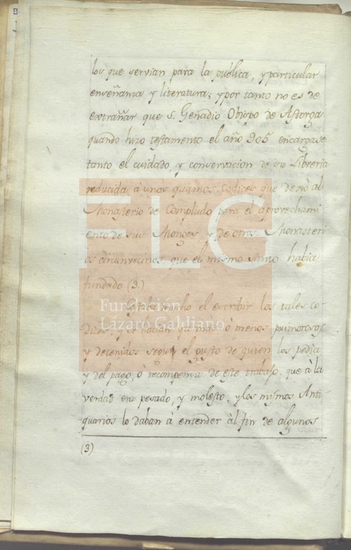 los que servian para la publica, y particular
enseñanza y literatura; y por tanto no es de
extrañar que S. Genadio Obispo de Astorga
quando hizo testamento el año 905 encargase
tanto el cuidado, y conservacion de su Libreria
reducida a unos quantos Codices que dexó al
Monasterio de Compludo para el aprovechami
ento de sus Monges y de otros Monasteri
os que el mismo Santo habia
fundado (3)
el escribir los tales co
dices y o menos primorosos
y decentes segun el gusto de quien los pedia
y del pago, o recompensa de este trabajo, que à la
verdad era pesado, y molesto, y los mismos Anti
quarios lo daban a entender àl fin de algunos
(3)
FLG
Fundación
Lázaro Galdiano